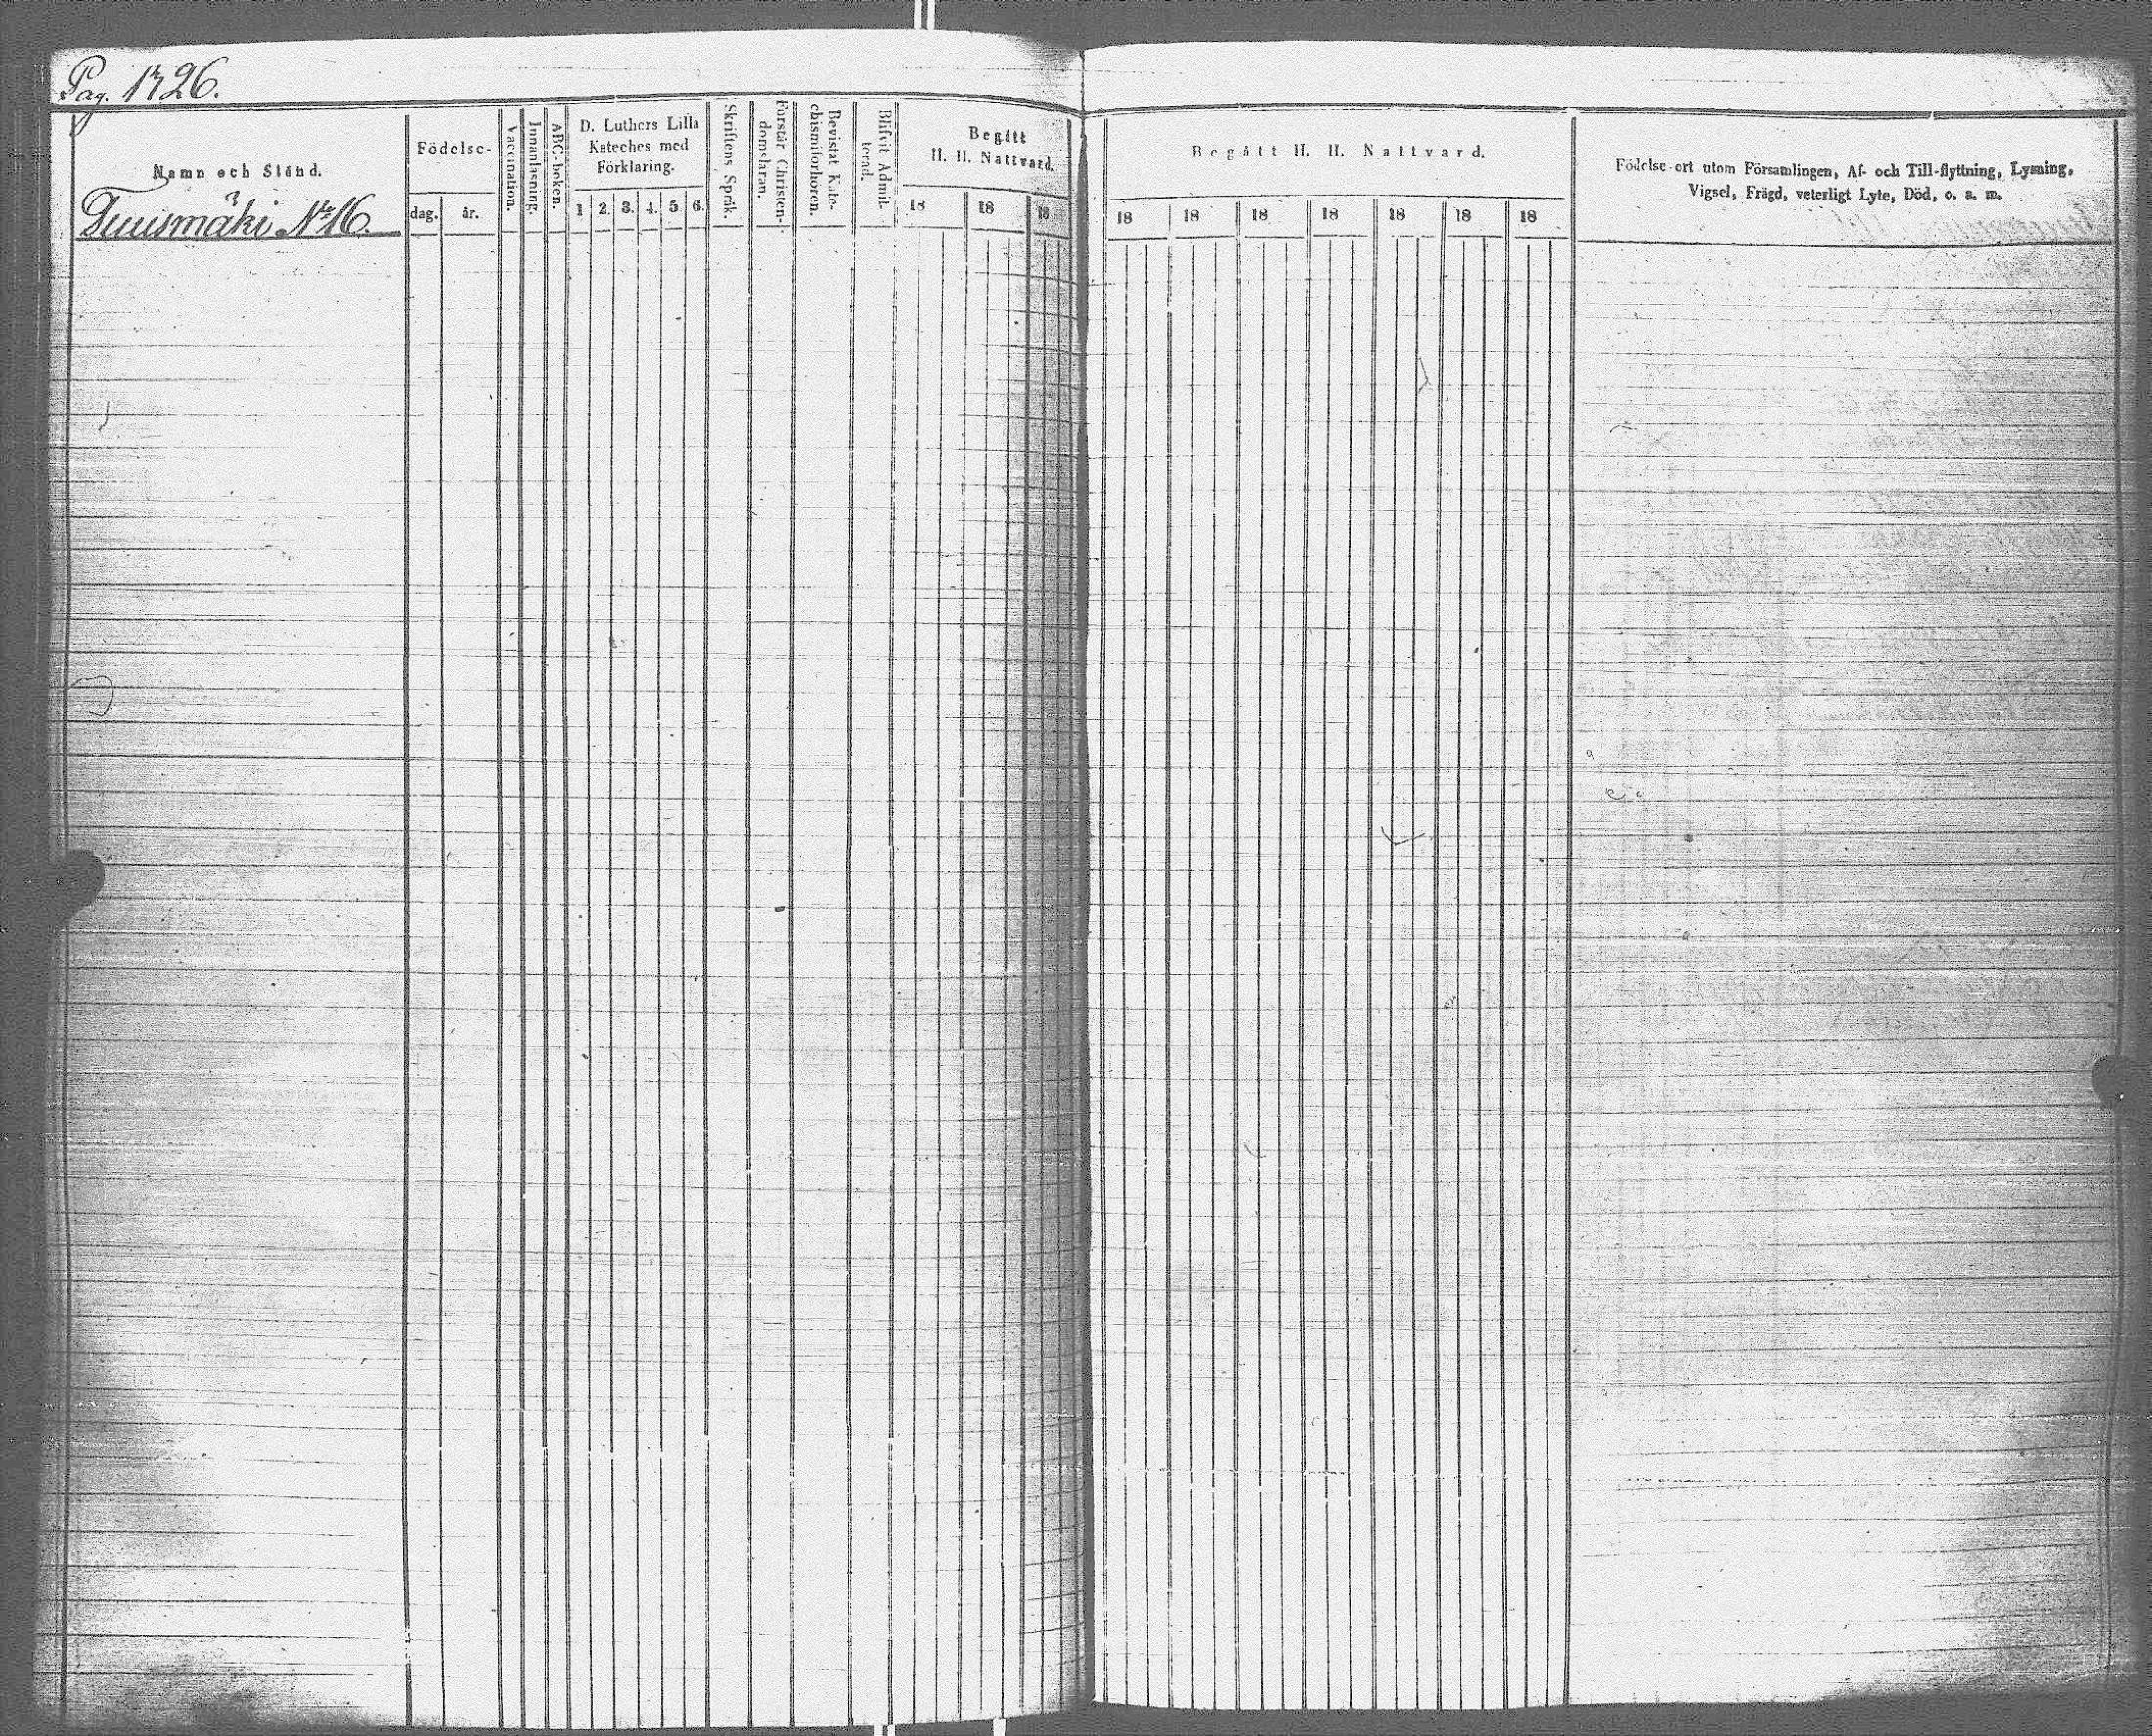 Pag. 1326.
Namn och Stånd.
Tuusmäki № 16.
Födelse-
dag. år.
Vaccination.
Innanläsning.
ABC-boken.
D. Luthers Lilla
Kateches med
Förklaring.
1 2. 3. 4. 5. 6.
Skriftens Språk.
Förstår Christen-
domsläran.
Bevistat Kate-
chismiförhören.
Blifvit Admit-
terad.
Begått
H. H. Nattvard.
18 18 18
Begått H. H. Nattvard.
18 18 18 18 18 18 18
Födelse-ort utom Församlingen, Af- och Till-flyttning, Lysning,
Vigsel, Frägd, veterligt Lyte, Död, o. s. m.